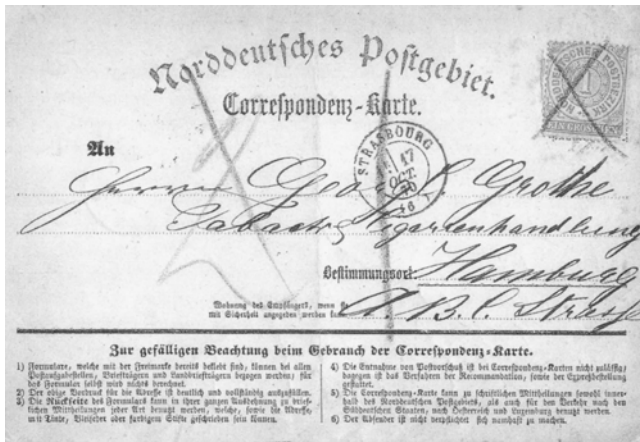 Norddeutsches Postgebiet.
Correspondenz-Karte.
NORDDEUTSCHER POSTBEZIRK
1
EIN GROSCHEN
STRASBOURG
17
OCT.
70
An
Herrn Georg Grothe
Tabac & Cigarrenhandlung
Bestimmungsort: Hamburg
Wohnung des Empfängers, wenn sie
mit Sicherheit angegeben werden kann
A. B. C. Strasse
Zur gefälligen Beachtung beim Gebrauch der Correspondenz-Karte.
1) Formulare, welche mit der Freimarke bereits beklebt sind, können bei allen
Postanstalten, Briefträgern und Landbriefträgern bezogen werden; für
das Formular selbst wird nichts berechnet.
2) Der obige Vordruck für die Adresse ist deutlich und vollständig auszufüllen.
3) Die Rückseite des Formulars kann in ihrer ganzen Ausdehnung zu brief-
lichen Mittheilungen jeder Art benutzt werden, welche, sowie die Adresse,
mit Tinte, Bleifeder oder farbigem Stifte geschrieben sein können.
4) Die Entnahme von Postvorschuß ist bei Correspondenz-Karten nicht zulässig;
dagegen ist das Verfahren der Recommandation, sowie der Expreßbestellung
gestattet.
5) Die Correspondenz-Karte kann zu schriftlichen Mittheilungen sowohl inner-
halb des Norddeutschen Postgebiets, als auch für den Verkehr nach den
Süddeutschen Staaten, nach Oesterreich und Luxemburg benutzt werden.
6) Der Absender ist nicht verpflichtet sich namhaft zu machen.